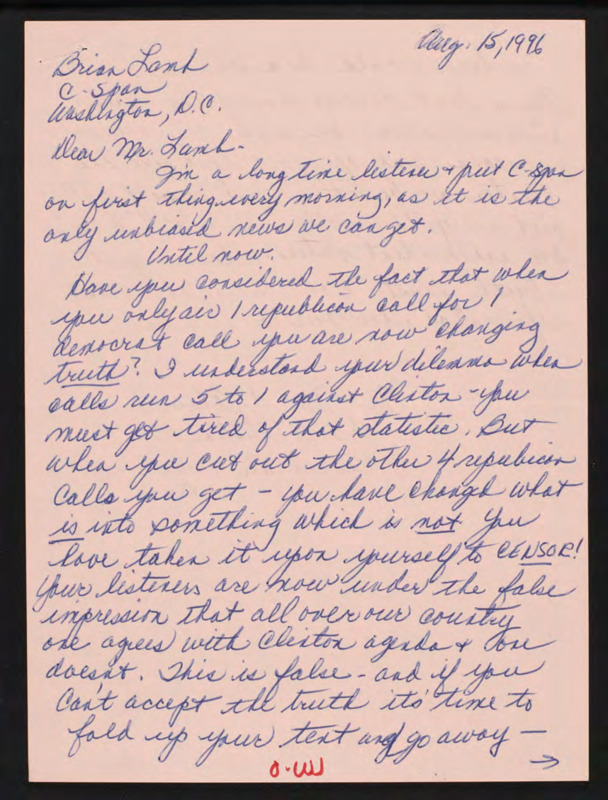 Aug. 15, 1996
Brian Lamb
C-Span
Washington, D.C.
Dear Mr. Lamb-
I'm a long time listener + put C-Span
on first thing every morning, as it is the
only unbiased news we can get.
Until now.
Have you considered the fact that when
you only air 1 republican call for 1
democrat call you are now changing
truth? I understand your dilemma when
calls run 5 to 1 against Clinton - you
must get tired of that statistic. But
when you cut out the other 4 republican
calls you get - you have changed what
is into something which is not You
have taken it upon yourself to CENSOR!
Your listeners are now under the false
impression that all over our country
one agrees with Clinton agenda + one
doesn't. This is false - and if you
can't accept the truth it's time to
fold up your tent and go away —
→